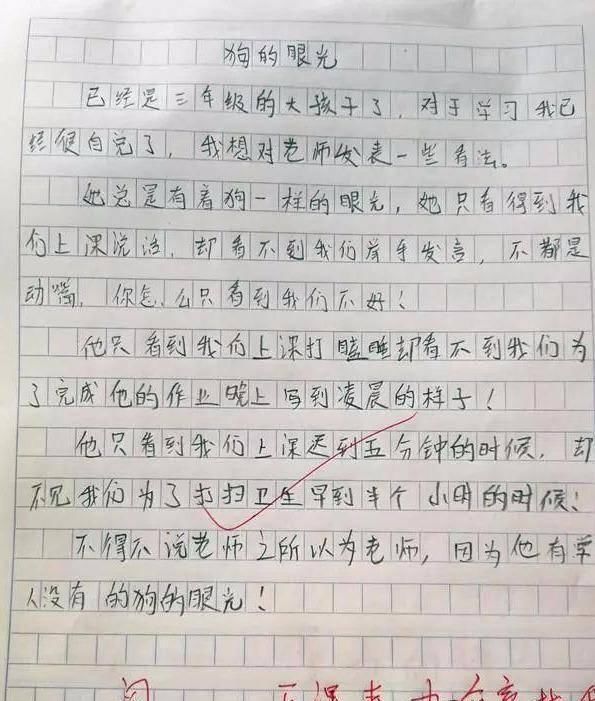 狗的眼光
已经是三年级的大孩子了，对于学习我已
经很自觉了，我想对老师发表一些看法。
她总是有着狗一样的眼光，她只看得到我
们上课说话，却看不到我们举手发言，不都是
动嘴，你怎么只看到我们不好！
他只看到我们上课打瞌睡却看不到我们为
了完成他的作业晚上写到凌晨的样子！
他只看到我们上课迟到五分钟的时候，却
不见我们为了打扫卫生早到半个小时的时候！
不得不说老师之所以为老师，因为他有常
人没有的狗的眼光！